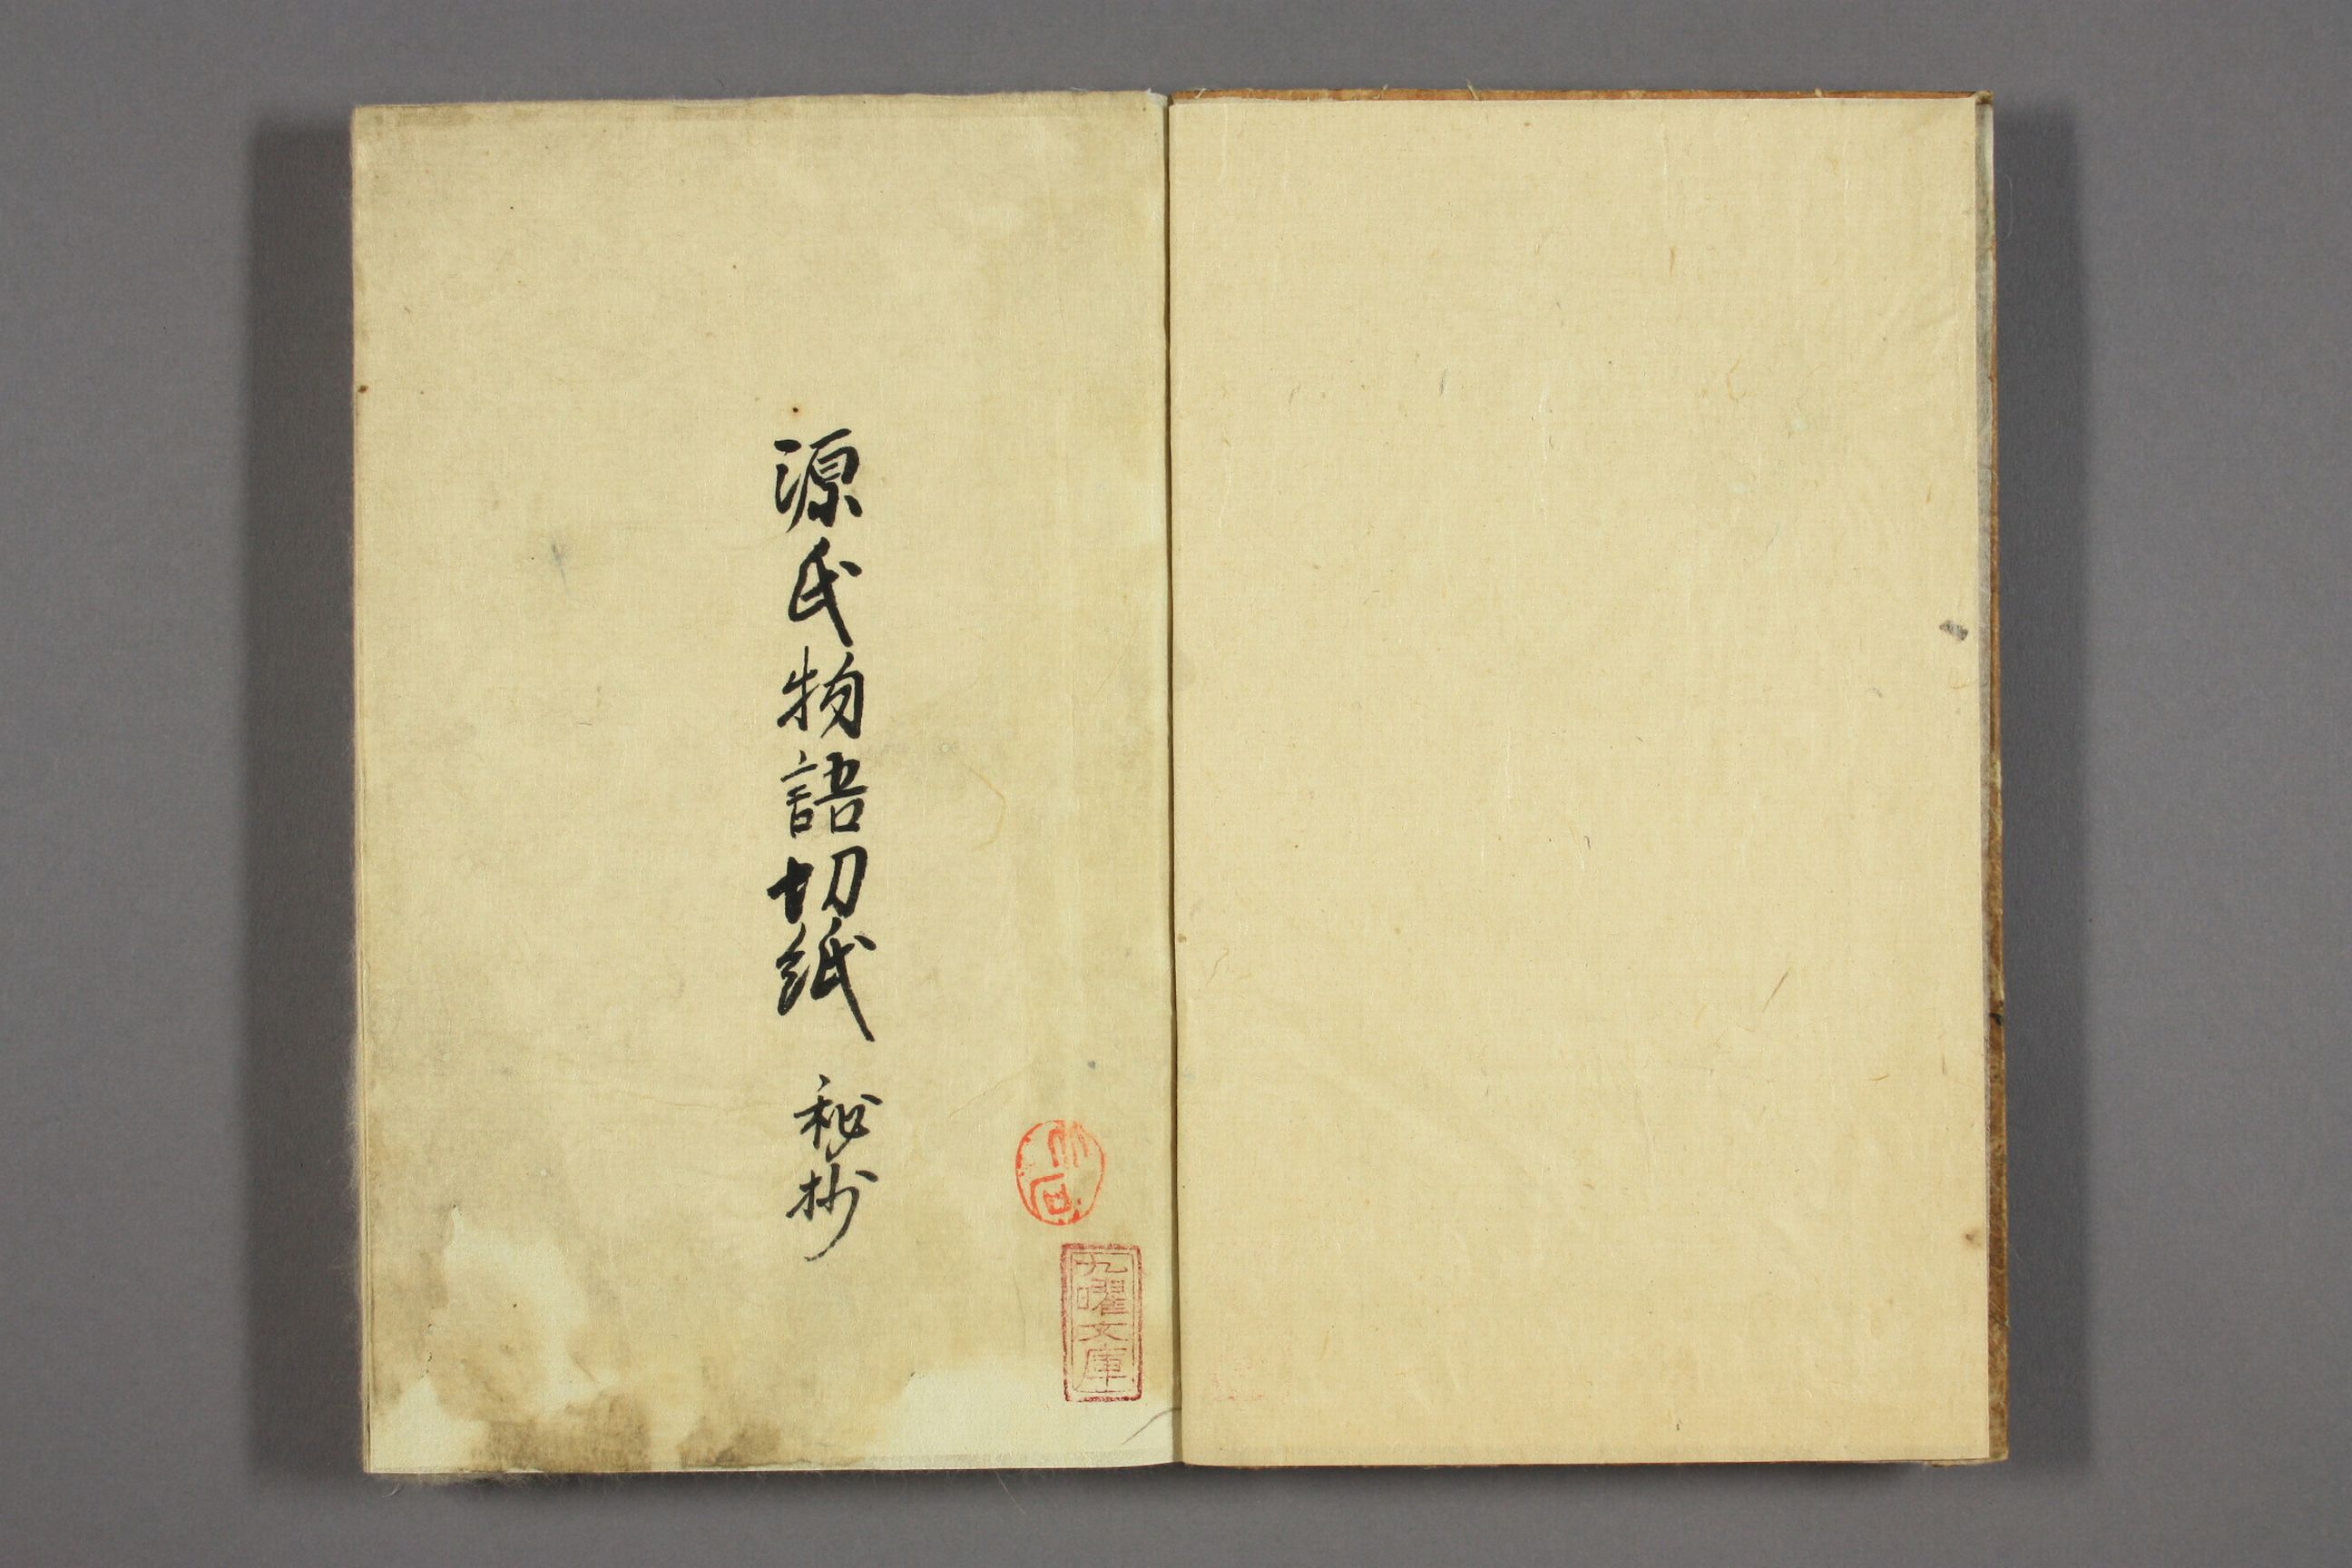 源氏物語切紙 秘抄
九曜文庫